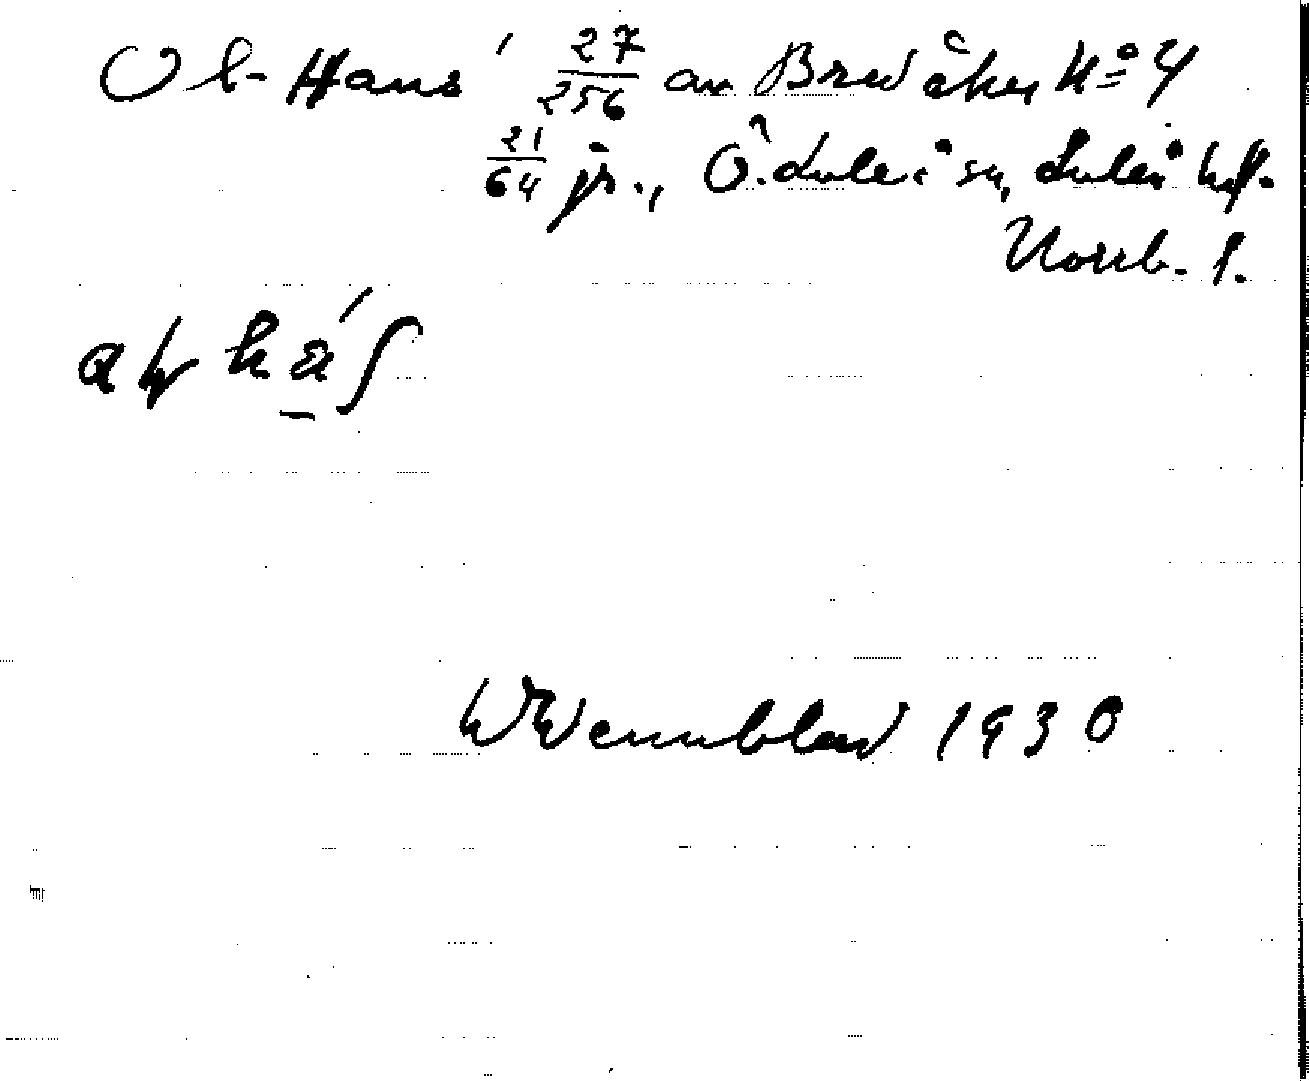 Ol-Hans' 27/256 av Bredåker No 4
21/64 jr., Ö. Luleå sn, Luleå hft.
Norrb. l.
W Wennblad 1930